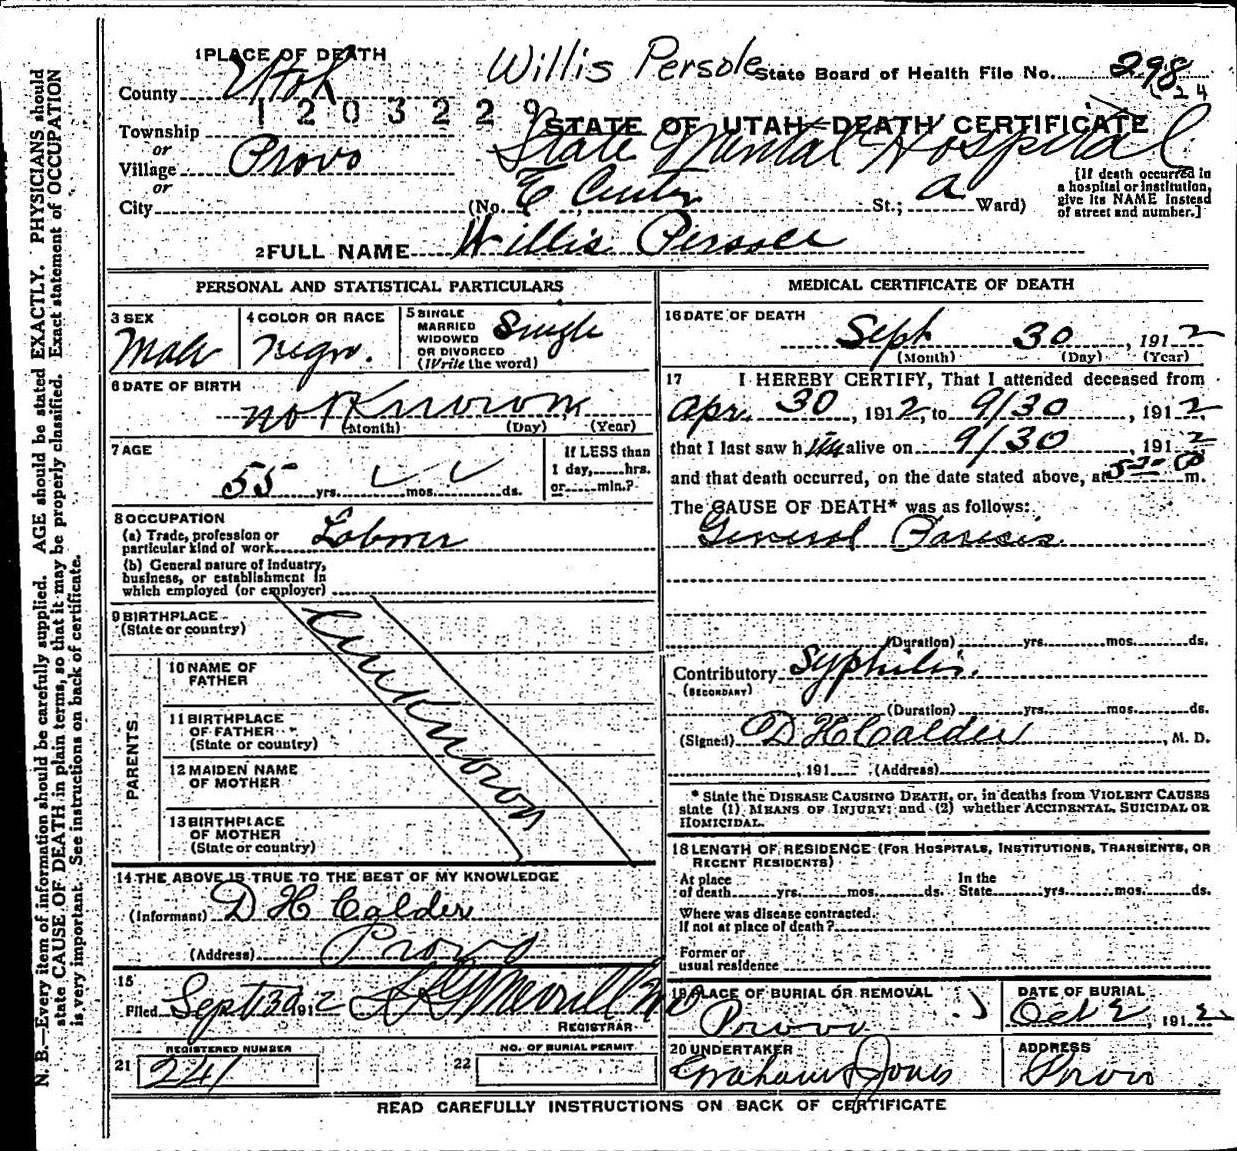 1 PLACE OF DEATH
Willis Persole
State Board of Health File No. 298
County Utah
1203229
STATE OF UTAH—DEATH CERTIFICATE
Township
or
Village Provo
State Mental Hospital
or
City (No. E Center St.; a Ward)
[If death occurred in
a hospital or institution,
give its NAME instead
of street and number.]
2 FULL NAME Willis Persole
PERSONAL AND STATISTICAL PARTICULARS
3 SEX
Male
4 COLOR OR RACE
negro.
5 SINGLE
MARRIED
WIDOWED
OR DIVORCED
(Write the word)
Single
6 DATE OF BIRTH
not Known
(Month) (Day) (Year)
7 AGE
55 yrs. mos. ds.
If LESS than
1 day, hrs.
or min.?
8 OCCUPATION
(a) Trade, profession or
particular kind of work Laborer
(b) General nature of Industry,
business, or establishment in
which employed (or employer)
9 BIRTHPLACE
(State or country)
Unknown
PARENTS
10 NAME OF
FATHER
11 BIRTHPLACE
OF FATHER
(State or country)
12 MAIDEN NAME
OF MOTHER
13 BIRTHPLACE
OF MOTHER
(State or country)
14 THE ABOVE IS TRUE TO THE BEST OF MY KNOWLEDGE
(Informant) D H Calder
(Address) Provo
15
Filed Sept 30 1912
REGISTRAR
REGISTERED NUMBER
21 241
NO. OF BURIAL PERMIT
22
MEDICAL CERTIFICATE OF DEATH
16 DATE OF DEATH
Sept 30, 1912
(Month) (Day) (Year)
17 I HEREBY CERTIFY, That I attended deceased from
Apr. 30, 1912, to 9/30, 1912,
that I last saw him alive on 9/30, 1912
and that death occurred, on the date stated above, at m.
The CAUSE OF DEATH* was as follows:
General Paresis
(Duration) yrs. mos. ds.
Contributory Syphilis.
(SECONDARY)
(Duration) yrs. mos. ds.
(Signed) D H Calder, M. D.
, 191 (Address)
* State the DISEASE CAUSING DEATH, or, in deaths from VIOLENT CAUSES
state (1) MEANS OF INJURY; and (2) whether ACCIDENTAL, SUICIDAL OR
HOMICIDAL.
18 LENGTH OF RESIDENCE (FOR HOSPITALS, INSTITUTIONS, TRANSIENTS, OR
RECENT RESIDENTS)
At place
of death yrs. mos. ds.
In the
State yrs. mos. ds.
Where was disease contracted,
If not at place of death?
Former or
usual residence
19 PLACE OF BURIAL OR REMOVAL
Provo
DATE OF BURIAL
Oct 2, 1912
20 UNDERTAKER
Graham & Jones
ADDRESS
Provo
READ CAREFULLY INSTRUCTIONS ON BACK OF CERTIFICATE
N. B.—Every item of information should be carefully supplied. AGE should be stated EXACTLY. PHYSICIANS should
state CAUSE OF DEATH in plain terms, so that it may be properly classified. Exact statement of OCCUPATION
is very important. See instructions on back of certificate.